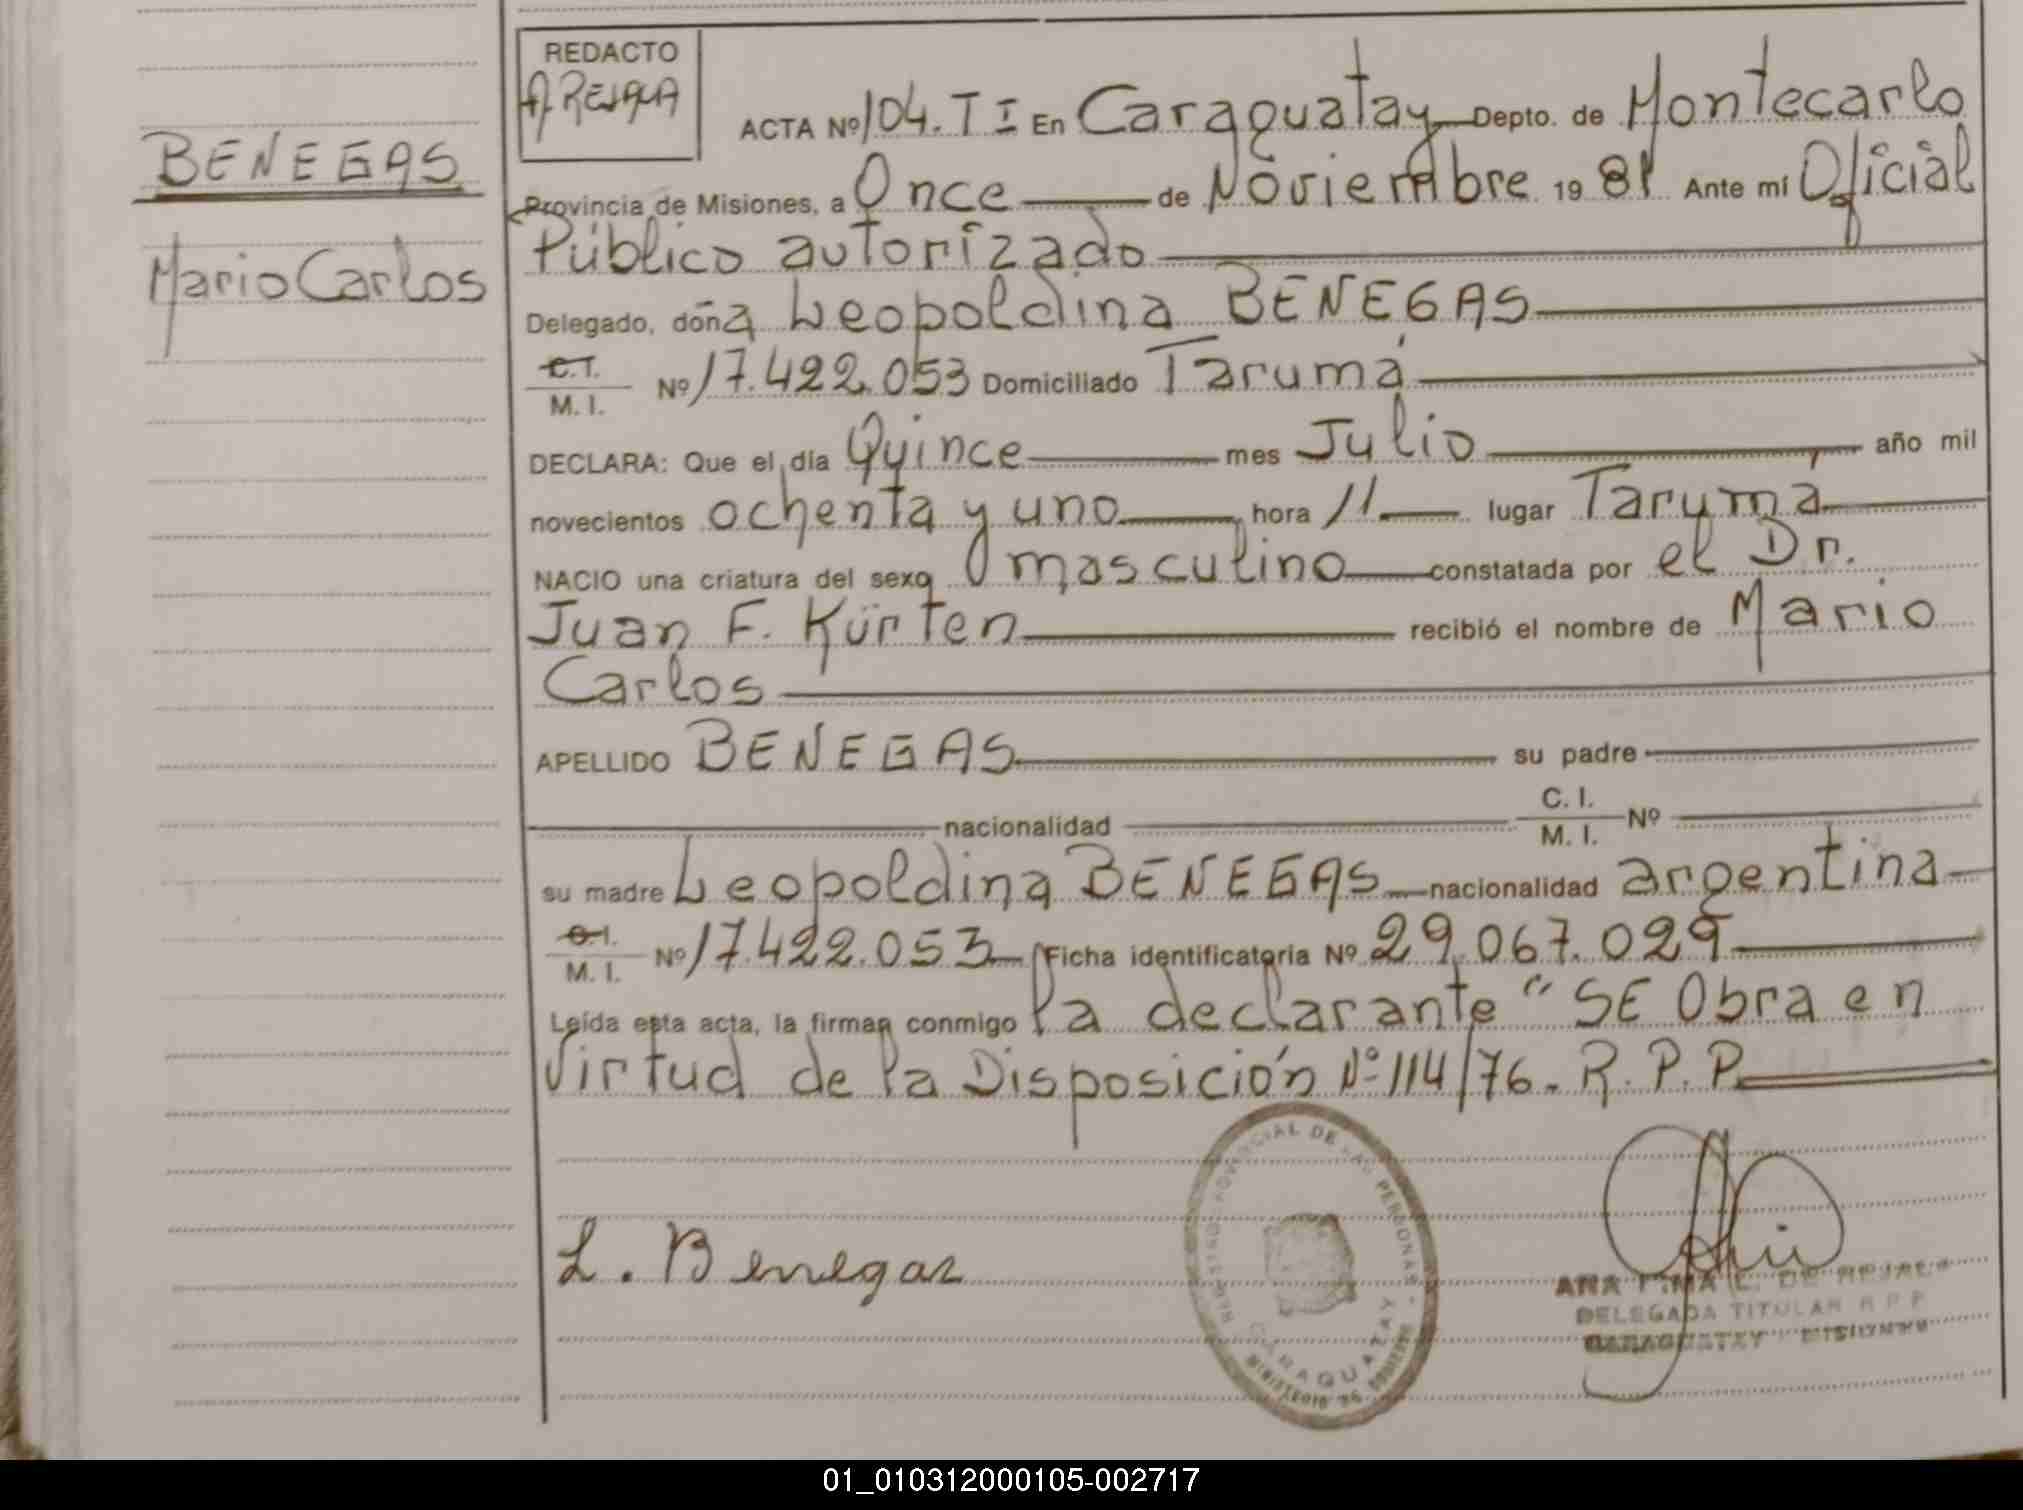 BENEGAS
Mario Carlos
REDACTO
ACTA Nº 104. T I En Caraguatay Depto. de Montecarlo
Provincia de Misiones, a Once de Noviembre 19 81 Ante mí Oficial
Público autorizado
Delegado, doña Leopoldina BENEGAS
C.I. M. I. Nº 17.422.053 Domiciliado Tarumá
DECLARA: Que el día Quince mes Julio año mil
novecientos ochenta y uno hora 11 lugar Tarumá
NACIO una criatura del sexo masculino constatada por el Dr.
Juan F. Kürten recibió el nombre de Mario
Carlos
APELLIDO BENEGAS su padre
nacionalidad C. I. M. I. Nº
su madre Leopoldina BENEGAS nacionalidad argentina
C.I. M. I. Nº 17.422.053 Ficha identificatoria Nº 29.067.029
Leída esta acta, la firman conmigo la declarante " SE Obra en
Virtud de la Disposición Nº 114/76. R. P. P.
L. Benegas
REGISTRO PROVINCIAL DE LAS PERSONAS
CARAGUATAY
MINISTERIO DE GOBIERNO
DELEGADA TITULAR R P P
CARAGUATAY MISIONES
01_010312000105-002717